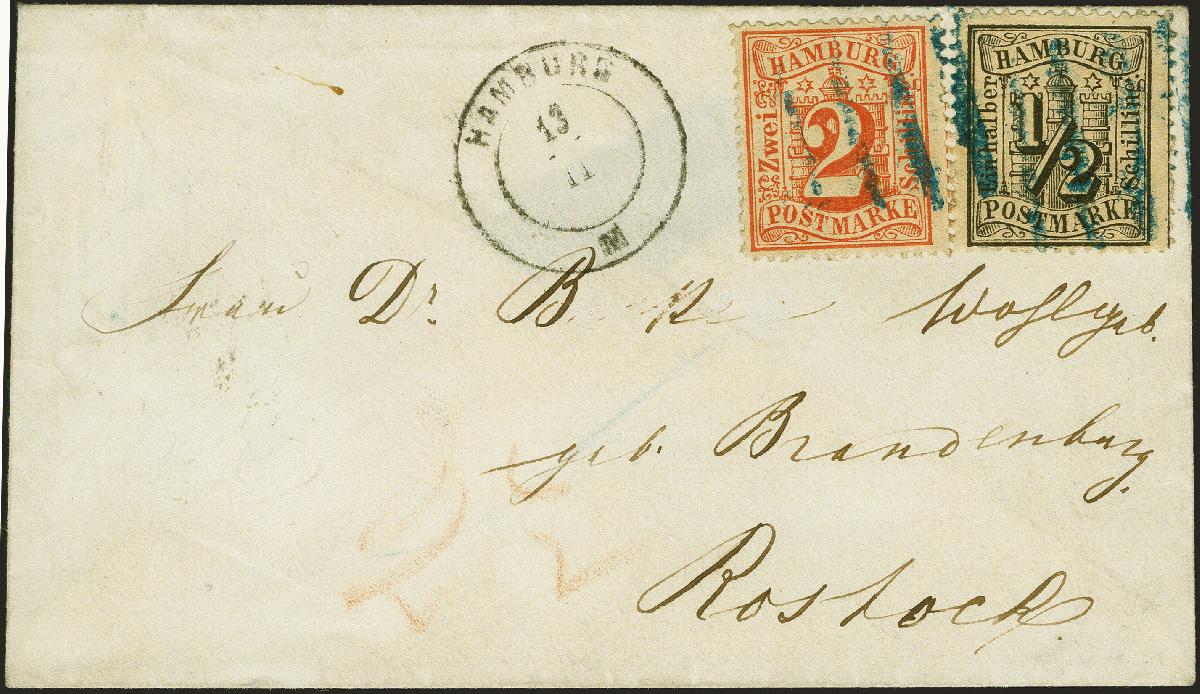 HAMBURG
13
11
M
HAMBURG
Zwei
2
Schillinge
POSTMARKE
HAMBURG
Ein halber
1/2
Schilling
POSTMARKE
Frau Dr. B Wohlgeb.
geb. Brandenburg.
Rostock
2½